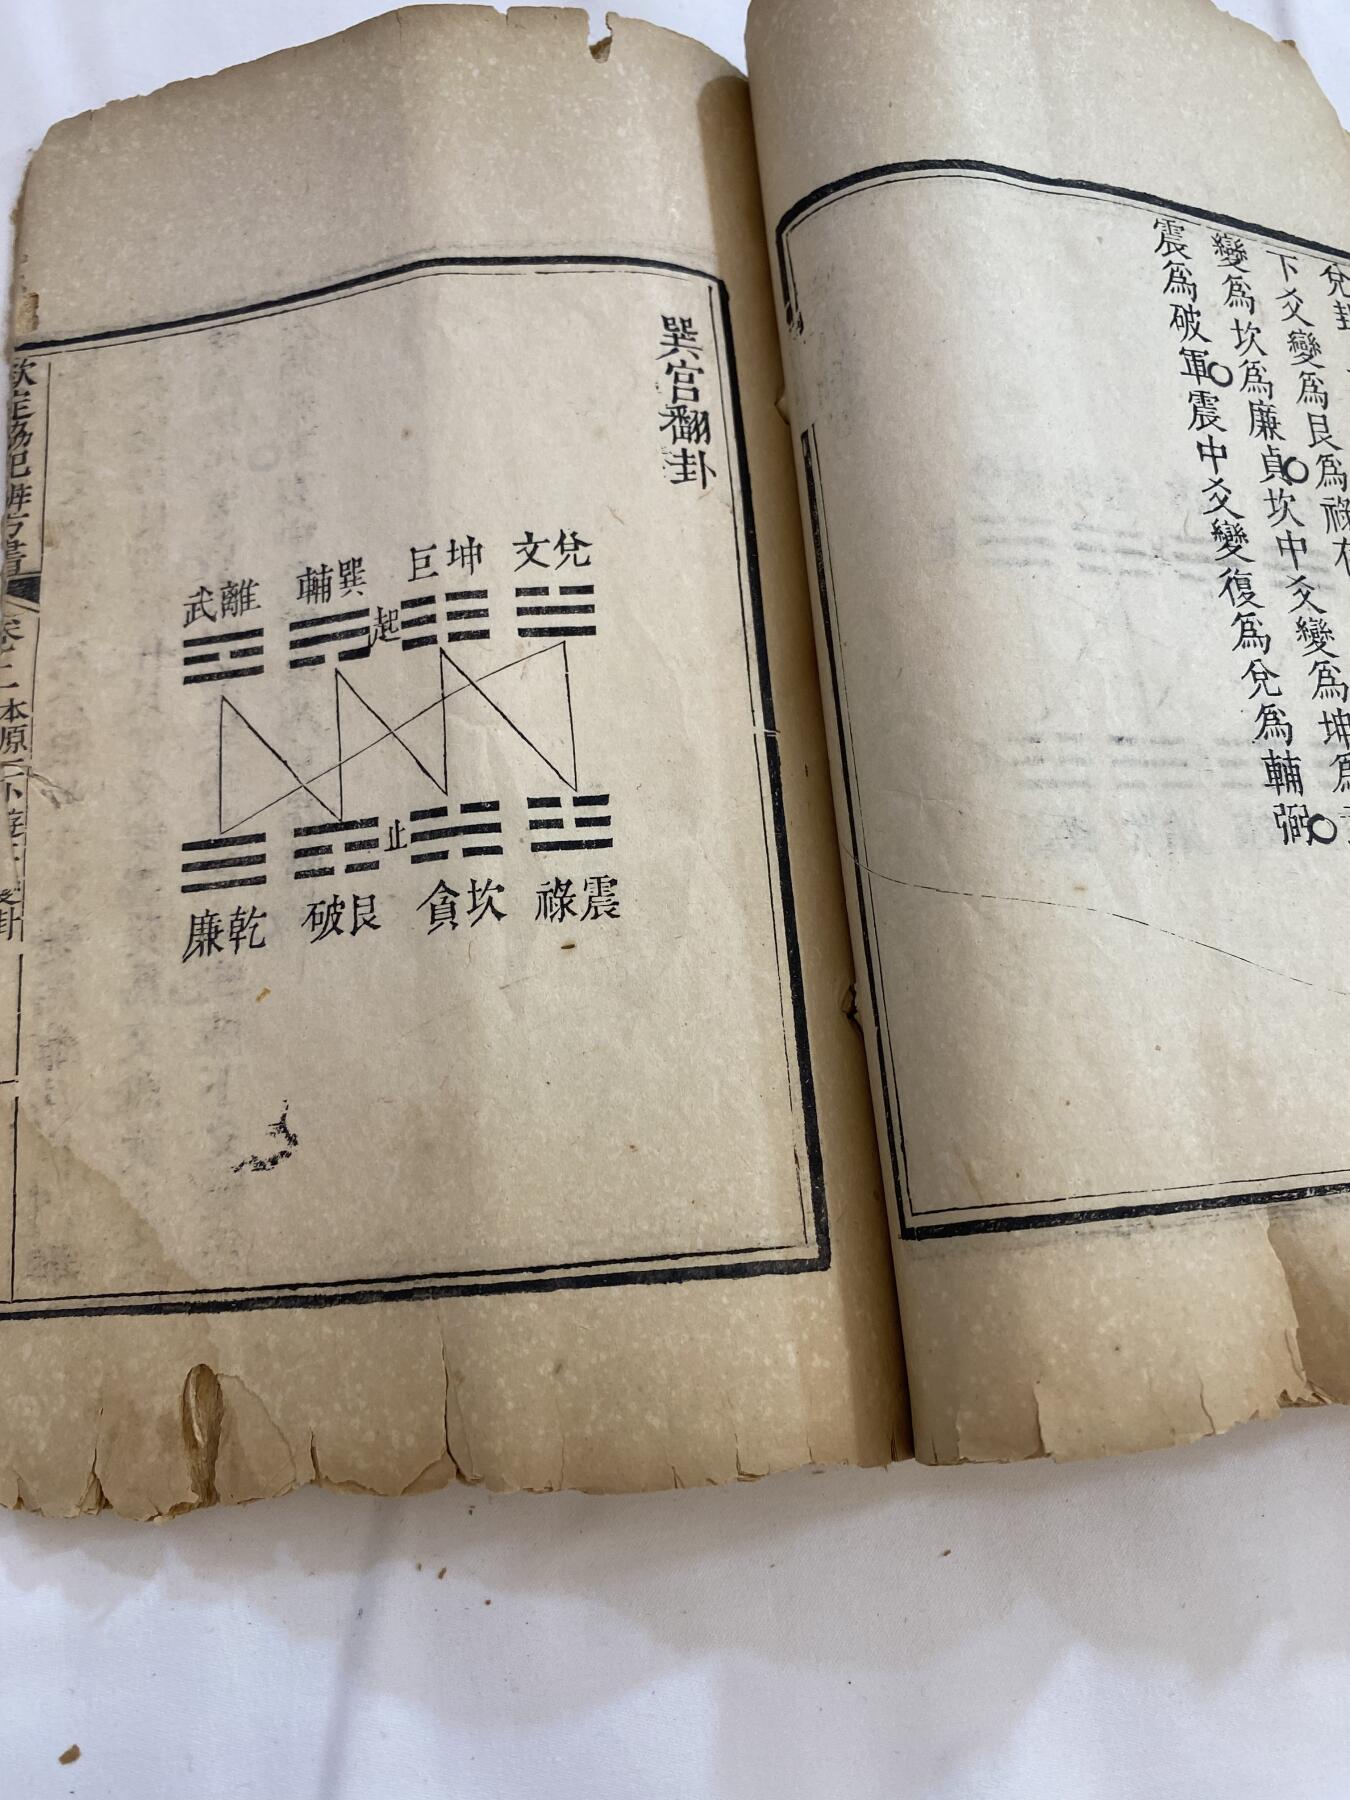 兌卦
下爻變爲艮爲祿存
變爲坎爲廉貞坎中爻變爲坤爲
震爲破軍震中爻變復爲兌爲輔弼
巽宮翻卦
兌文
坤巨
巽輔
離武
起
止
震祿
坎貪
艮破
乾廉
欽定協紀辨方書
卷之一本原一
變卦